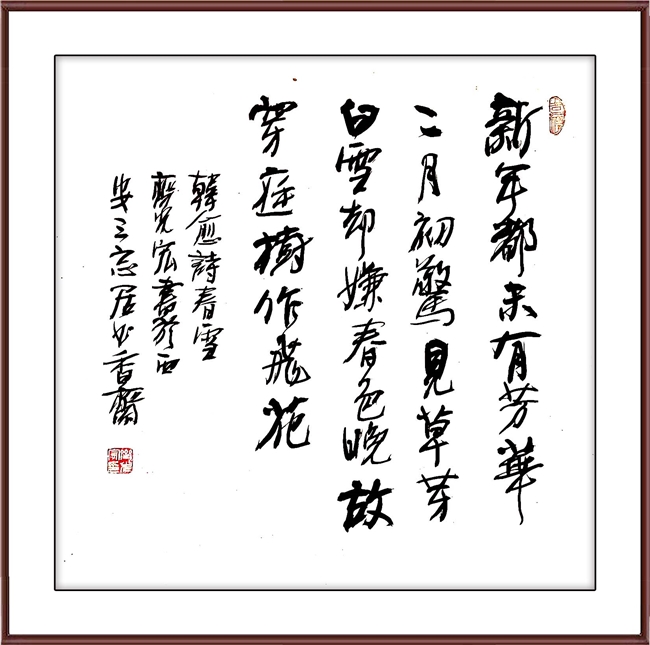 新年都未有芳華
二月初驚見草芽
白雪却嫌春色晚故
穿庭樹作飛花
韓愈詩春雪
光宏書於西
安三忘居香齋